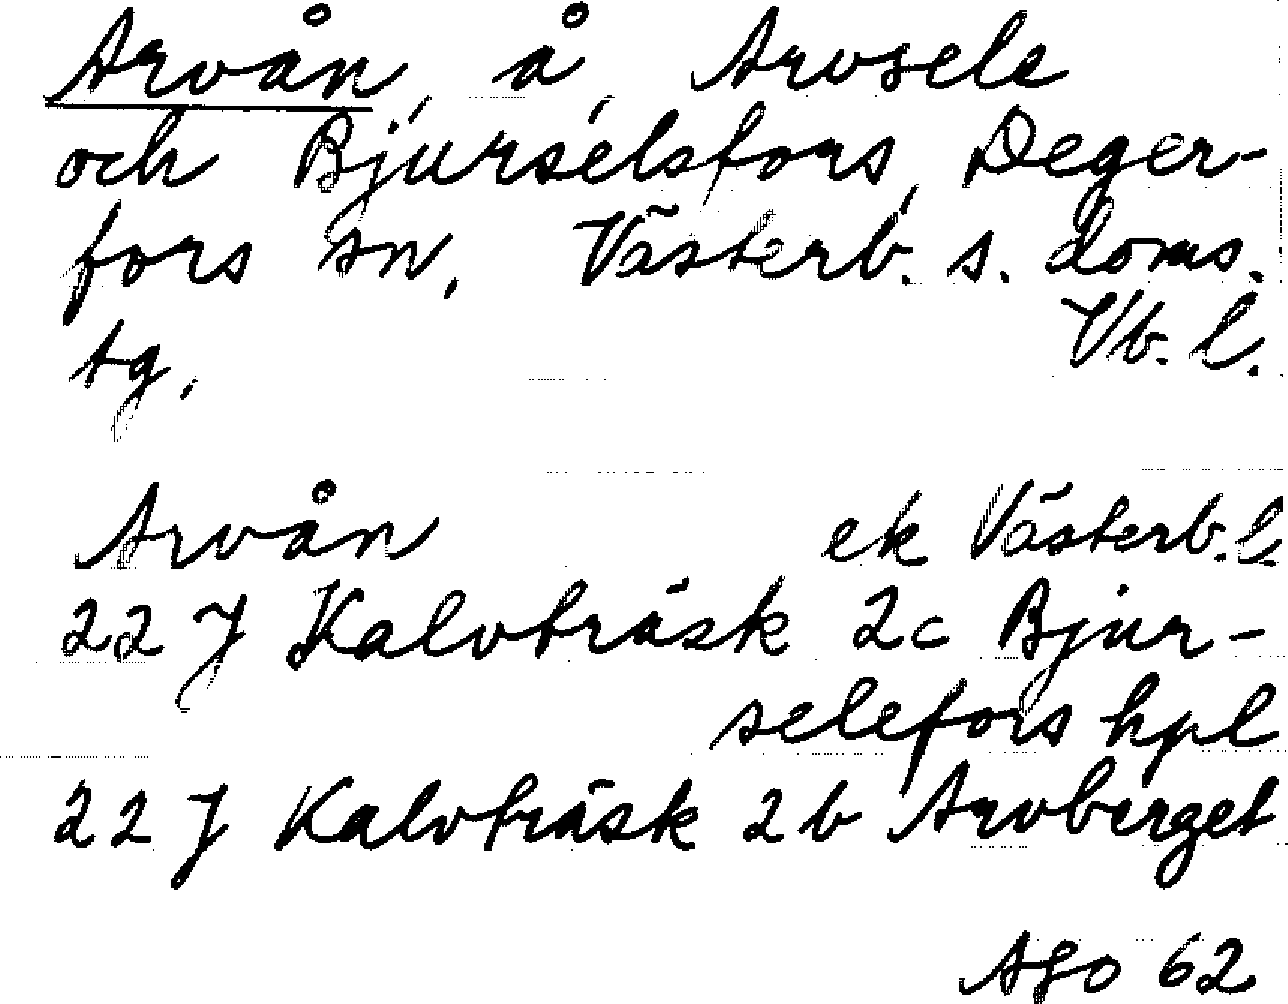 Arvån, å, Arvsele
och Bjurselsfors, Deger-
fors sn, Västerb. s. doms.
tg, Vb. l.
Arvån ek Västerb. l.
22 J Kalvträsk 2c Bjur-
selefors hpl
22 J Kalvträsk 2b Arvberget
ASO 62